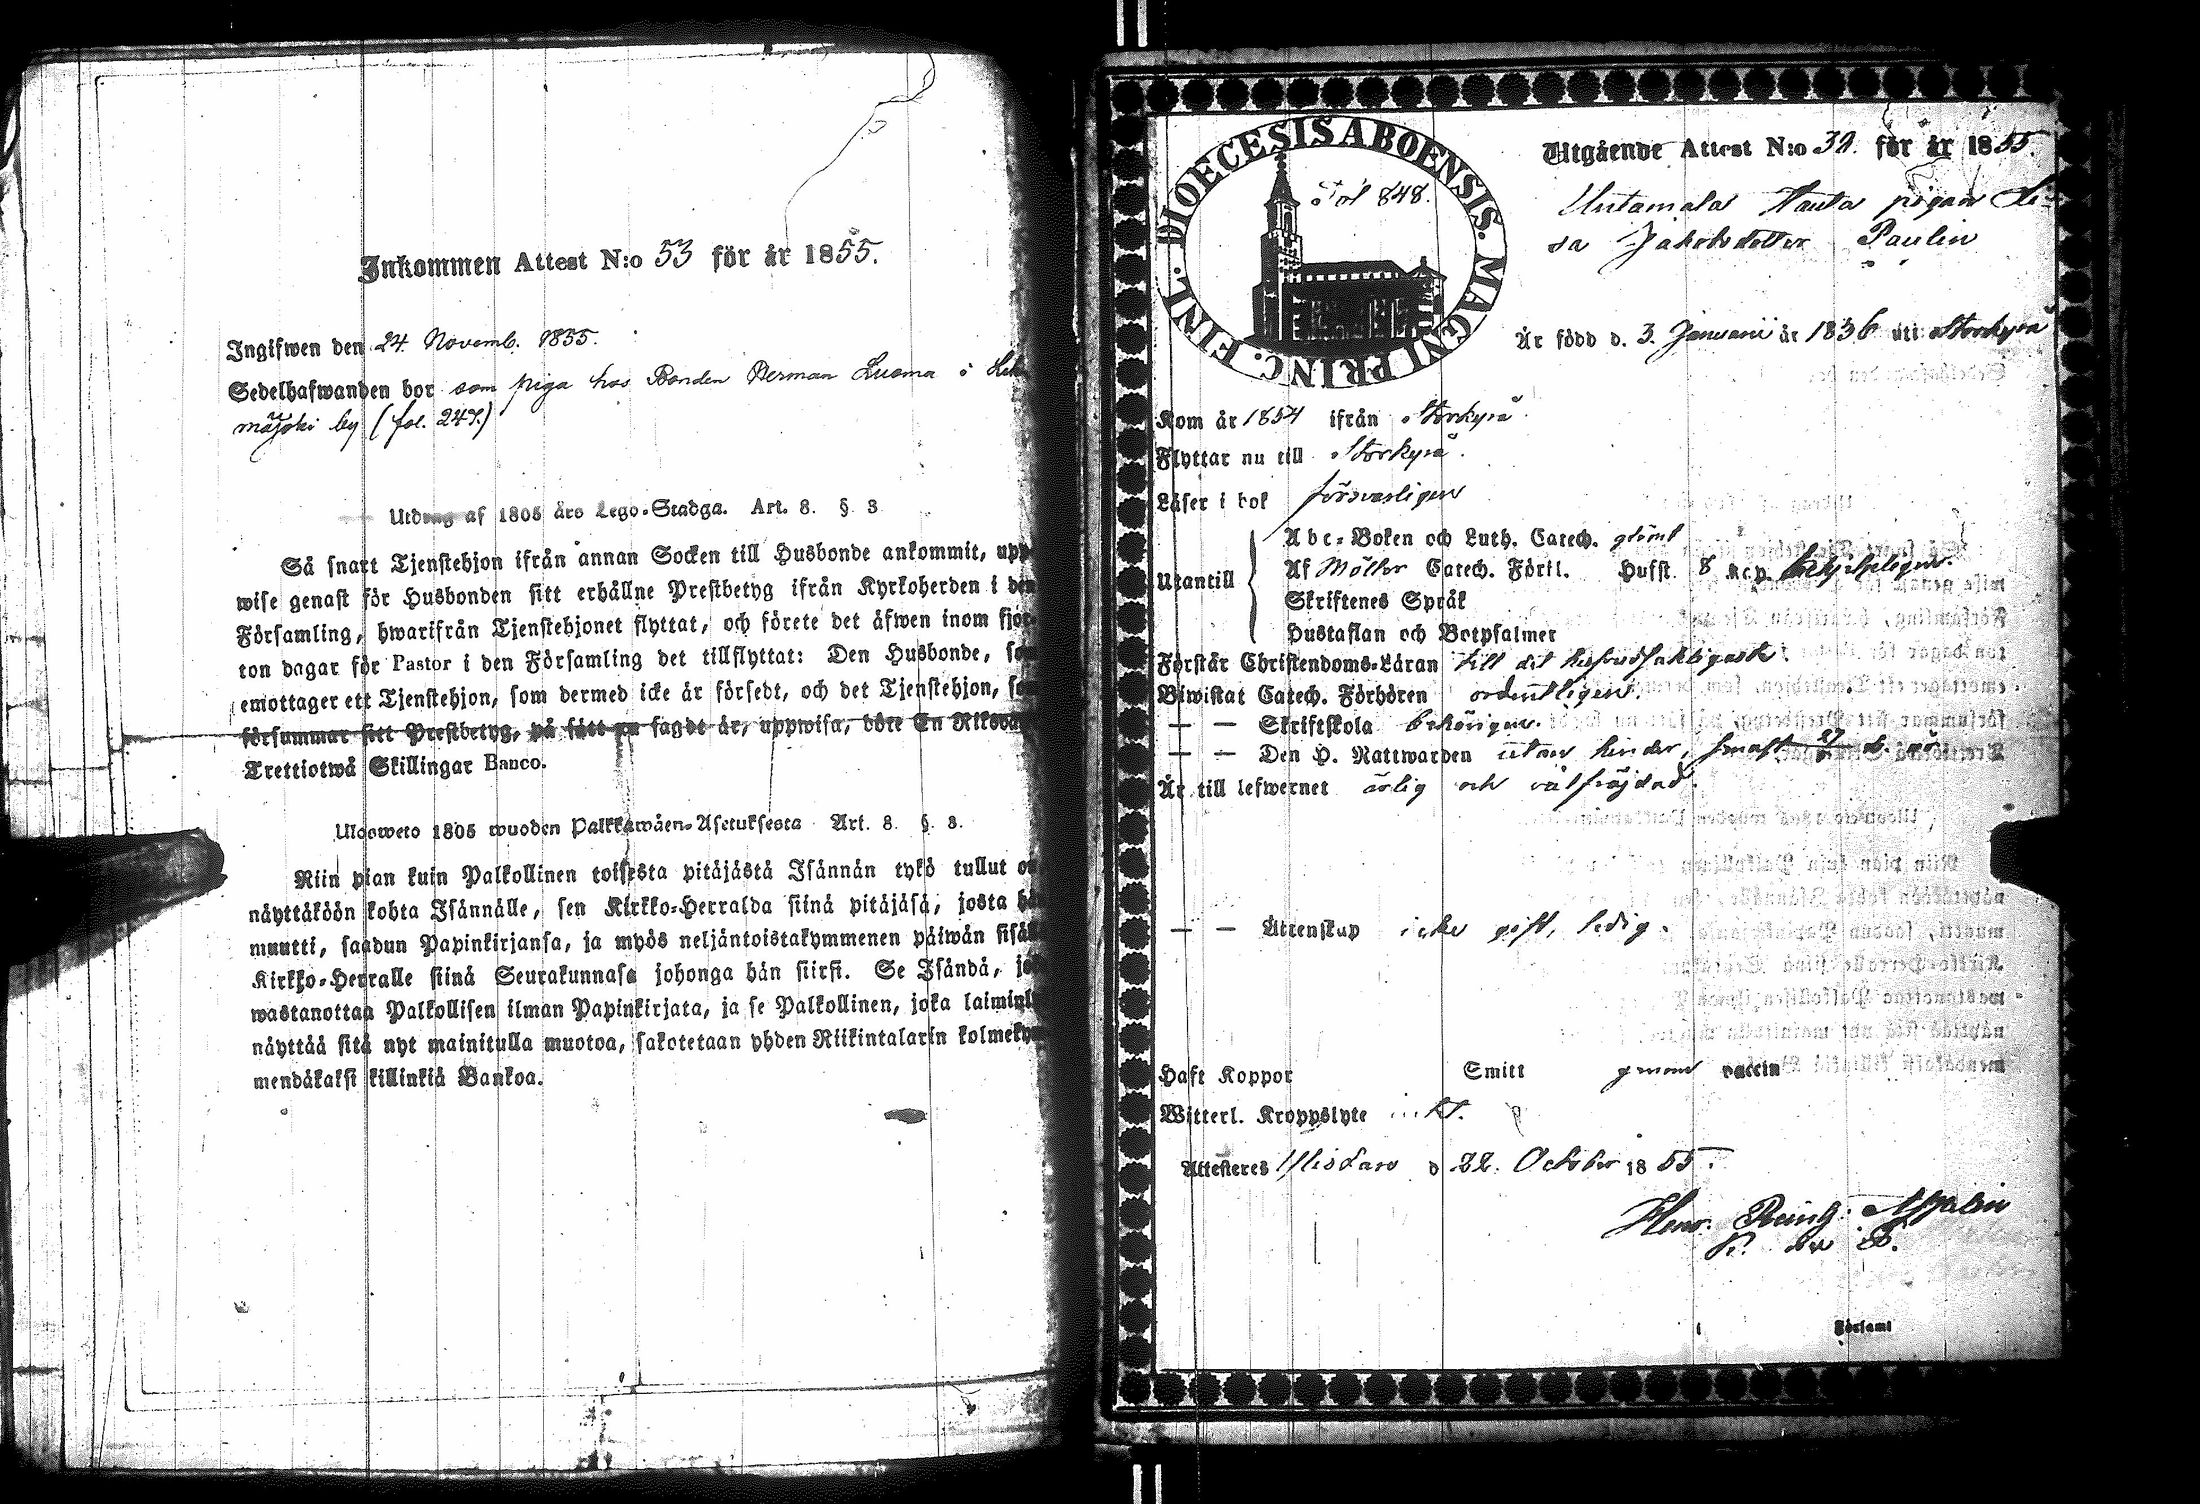 Inkommen Attest N:o 53 för år 1855.
Ingifwen den 24 Novemb. 1855.
Sedelhafwanden bor som piga hos Bonden Herman Luoma i
by (fol. 247.)
Utdrag af 1805 års Lego-Stadga. Art. 8. § 3
Så snart Tjenstehjon ifrån annan Socken till Husbonde ankommit, upp
wise genast för Husbonden sitt erhållne Prestbetyg ifrån Kyrkoherden i den
Församling, hwarifrån Tjenstehjonet flyttat, och förete det äfwen inom fjor-
ton dagar för Pastor i den Församling det tillflyttat: Den Husbonde, som
emottager ett Tjenstehjon, som dermed icke är försedt, och det Tjenstehjon, som
försummar sitt Prestbetyg, på sätt nu sagdt är, uppwisa, böte En Riksda
Trettiotwå Skillingar Banco.
Ulosweto 1805 wuoden Palkkawäen-Asetuksesta Art. 8. §. 3.
Niin pian kuin Palkollinen toisesta pitäjästä Isännän tykö tullut on
näyttäköön kohta Isännälle, sen Kirkko-Herralda siinä pitäjäsä, josta hän
muutti, saadun Papinkirjansa, ja myös neljäntoistakymmenen päiwän sisäl
Kirkko-Herralle siinä Seurakunnasa johonga hän siirsi. Se Isändä, jo
wastanottaa Palkollisen ilman Papinkirjata, ja se Palkollinen, joka laiminly
näyttää sitä nyt mainitulla muotoa, sakotetaan yhden Riikintalarin kolmekym
mendäkaksi killinkiä Bankoa.
DIOECESIS ABOENSIS. MAGNI PRINC. FINL.
Fol 848.
Utgående Attest N:o 32. för år 1855.
pigan Li-
sa Jakobsdotter Paulin
Är född d. 3. Januarii år 1836 uti Storkyrå
Kom år 1854 ifrån Storkyrå
Flyttar nu till Storkyrå.
Läser i bok försvarligen
Utantill
Abc-Boken och Luth. Catech. glömt
Af Möller Catech. Förkl. Hufst. 8 Kcp.
Skriftenes Språk
Hustaflan och Botpsalmer
Förstår Christendoms-Läran till det hufvudsakligaste.
Biwistat Catech. Förhören ordentligen.
— — Skriftskola behörigen.
— — Den H. Nattwarden utan hinder, senast
Är till lefwernet ärlig och välfräjdad.
— — Äktenskap icke gift, ledig.
Haft Koppor Smitt genom vaccin
Witterl. Kroppslyte
Attesteres Ylistaro d 22. October 1855.
Henr. Reinh:
Församl